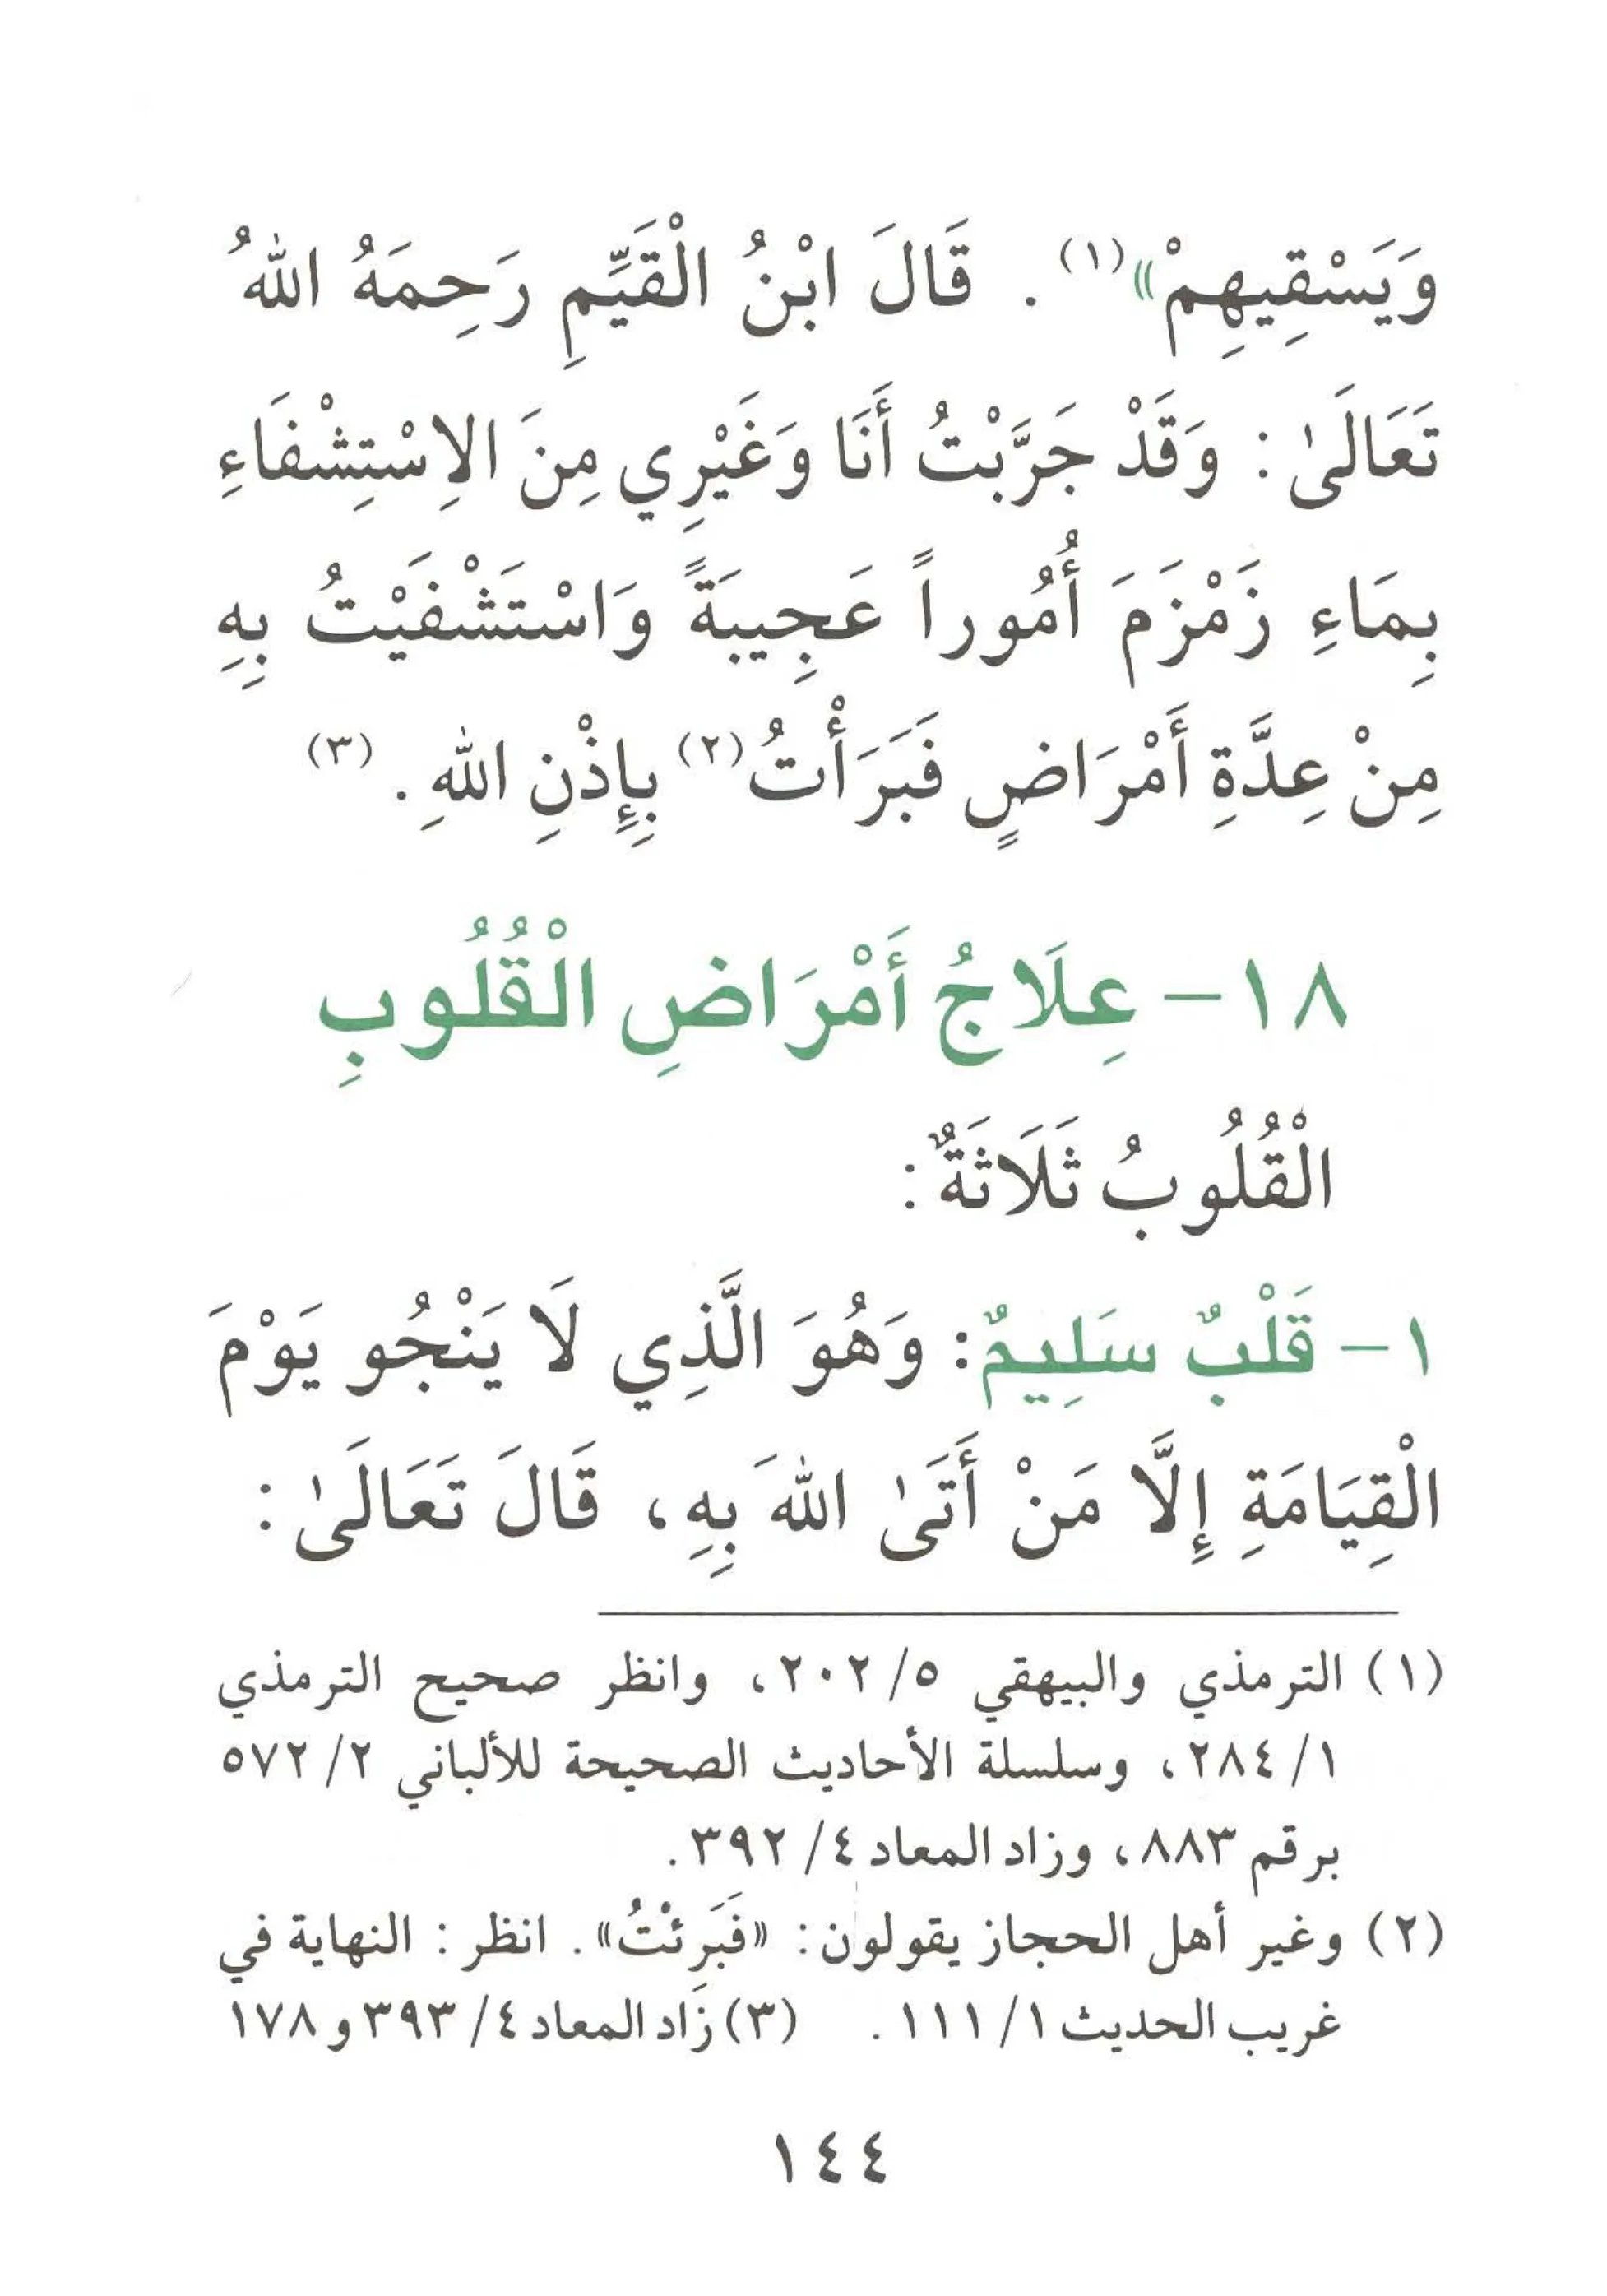 وَيَسْقِيهِمْ»(١) . قَالَ ابْنُ الْقَيِّمِ رَحِمَهُ اللهُ
تَعَالَىٰ : وَقَدْ جَرَّبْتُ أَنَا وَغَيْرِي مِنَ الاِسْتِشْفَاءِ
بِمَاءِ زَمْزَمَ أُمُوراً عَجِيبَةً وَاسْتَشْفَيْتُ بِهِ
مِنْ عِدَّةِ أَمْرَاضٍ فَبَرَأْتُ(٢) بِإِذْنِ اللهِ . (٣)
١٨- عِلَاجُ أَمْرَاضِ الْقُلُوبِ
الْقُلُوبُ ثَلَاثَةٌ :
١- قَلْبٌ سَلِيمٌ : وَهُوَ الَّذِي لَا يَنْجُو يَوْمَ
الْقِيَامَةِ إِلَّا مَنْ أَتَىٰ اللهَ بِهِ، قَالَ تَعَالَىٰ :
(١) الترمذي والبيهقي ٥/ ٢٠٢، وانظر صحيح الترمذي
١/ ٢٨٤، وسلسلة الأحاديث الصحيحة للألباني ٢/ ٥٧٢
برقم ٨٨٣، وزاد المعاد ٤/ ٣٩٢.
(٢) وغير أهل الحجاز يقولون: «فَبَرِئْتُ». انظر: النهاية في
غريب الحديث ١/ ١١١. (٣) زَاد المعاد ٤/ ٣٩٣ و١٧٨
١٤٤